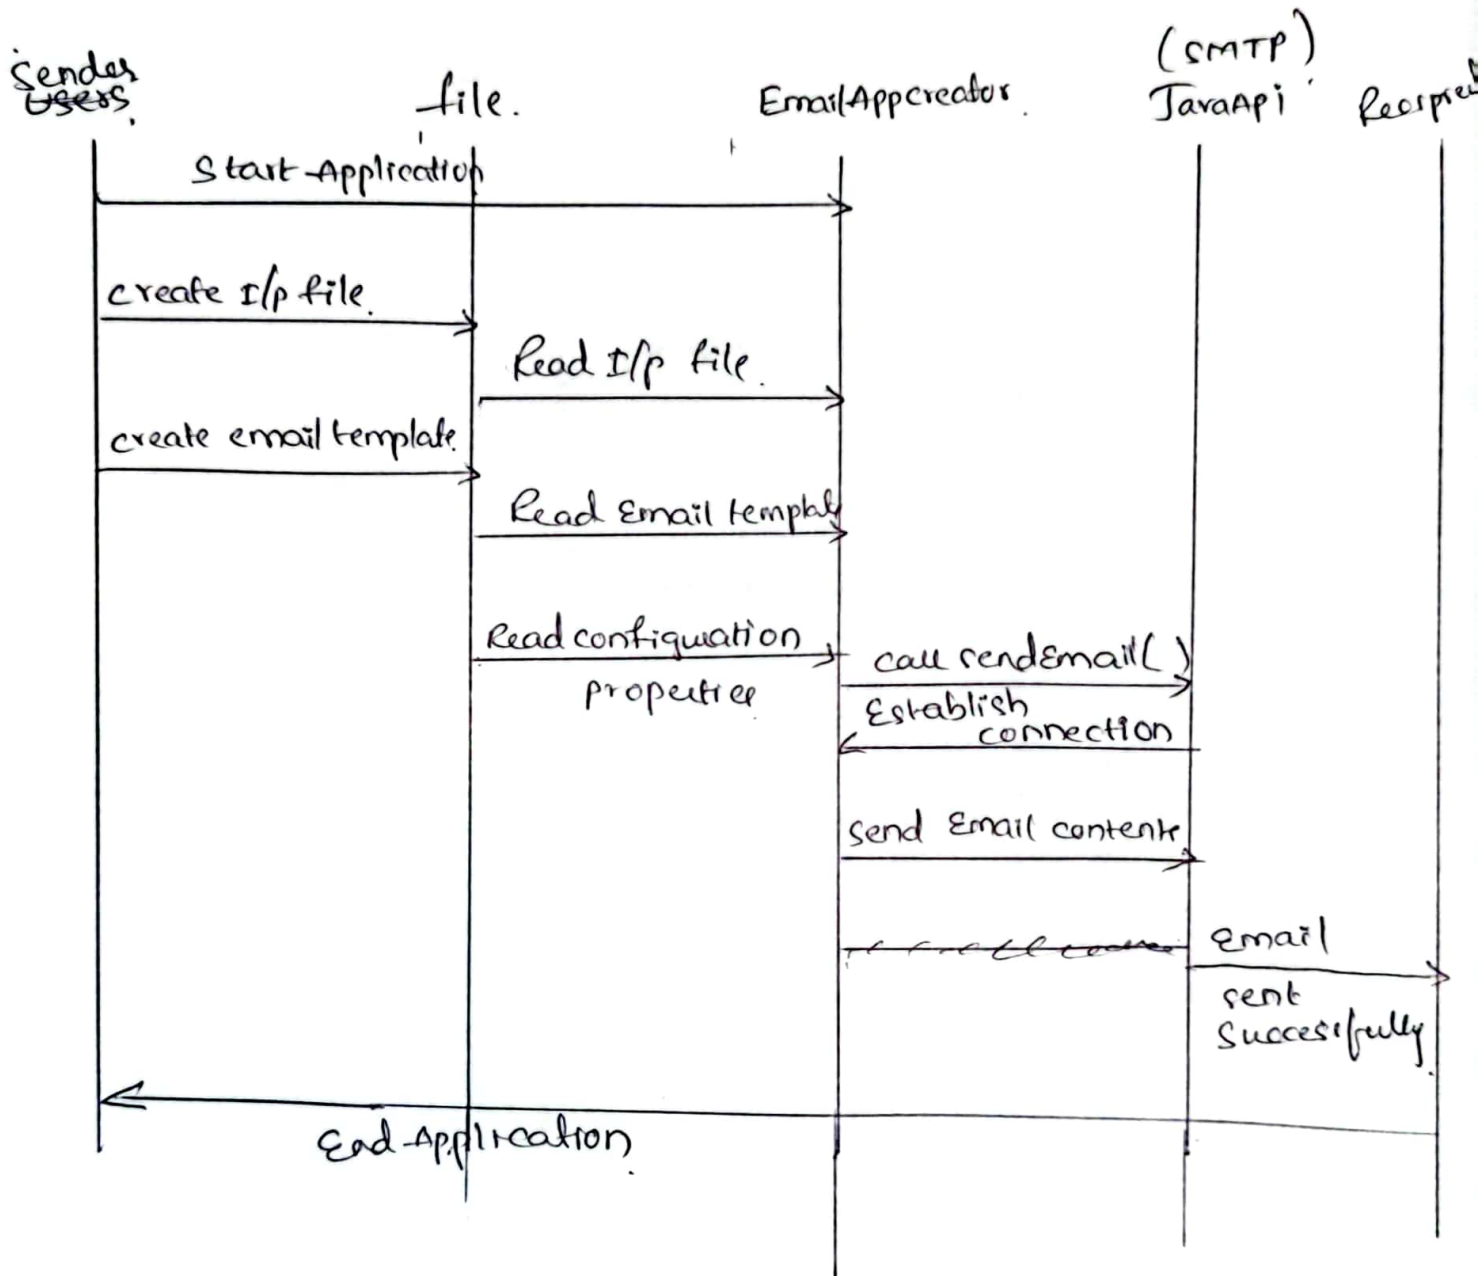 (SMTP)
Sender
Users.
file.
EmailAppcreator.
JavaApi
Start Application
create I/p file.
Read I/p file.
create email template.
Read Email templat
Read configuration
properties
call sendEmail()
Establish
connection
Send Email contents
Email
sent
Successfully.
End Application.